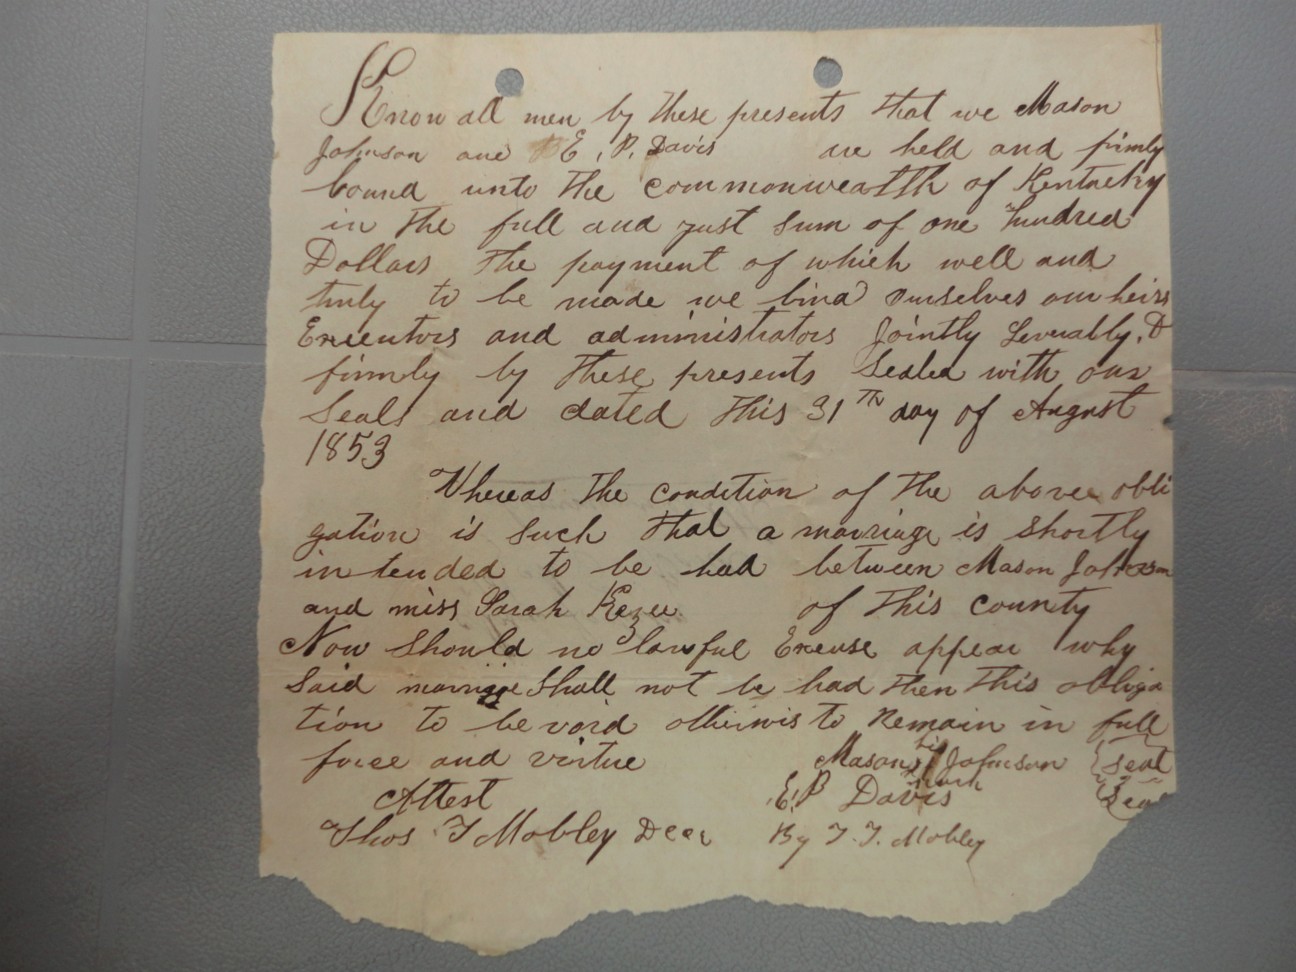 Know all men by these presents that we Mason
Johnson and E. P. Davis are held and firmly
bound unto the commonwealth of Kentucky
in the full and just sum of one hundred
Dollars the payment of which well and
truly to be made we bind ourselves our heirs
Executors and administrators Jointly Severably, &
firmly by these presents Sealed with our
Seals and dated this 31th day of August
1853
Whereas the condition of the above obli
gation is such that a marriage is shortly
intended to be had between Mason Johnson
and miss Sarah Kezee of this county
Now should no lawful Excuse appear why
Said marriage Shall not be had then this obliga
tion to be void otherwis to Remain in full
force and virtue Mason his Johnson Seal
mark
Attest E. P Davis Seal
Thos T Mobley By T. T. Mobley